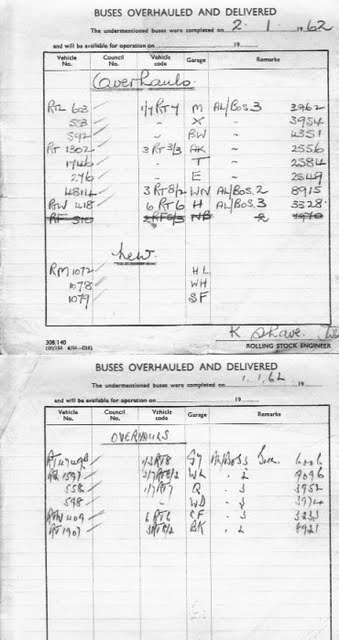 BUSES OVERHAULED AND DELIVERED
The undermentioned buses were completed on 2.1.1962
and will be available for operation on 19
Vehicle No. Council No. Vehicle code Garage Remarks
Overhauls
RTL 603 1/7 RT7 M AL/BOS.3 3962
553 " X " 3954
592 " BW " 4351
RT 1302 3 RT 3/3 AK " 2556
1746 " T " 2584
276 " E " 2549
4814 3 RT8/2 WN AL/BOS.2 8915
RTW 418 6 RT6 H AL/BOS.3 3328
RF 310 2RF5/3 NB 1970
New
RM 1072 HL
1078 WH
1079 SF
308/140
K Shave.
ROLLING STOCK ENGINEER
BUSES OVERHAULED AND DELIVERED
The undermentioned buses were completed on 1.1.62 19
and will be available for operation on 19
Vehicle No. Council No. Vehicle code Garage Remarks
OVERHAULS
1/3 RT8 6006
1597 3/7 RT8/2 WL 2 9096
558 1/7 RT7 Q 3 3952
598 " WD 3 3974
RTW 409 6 RT6 SF 3 3233
RT 1907 3RT8/2 AK 2 8921